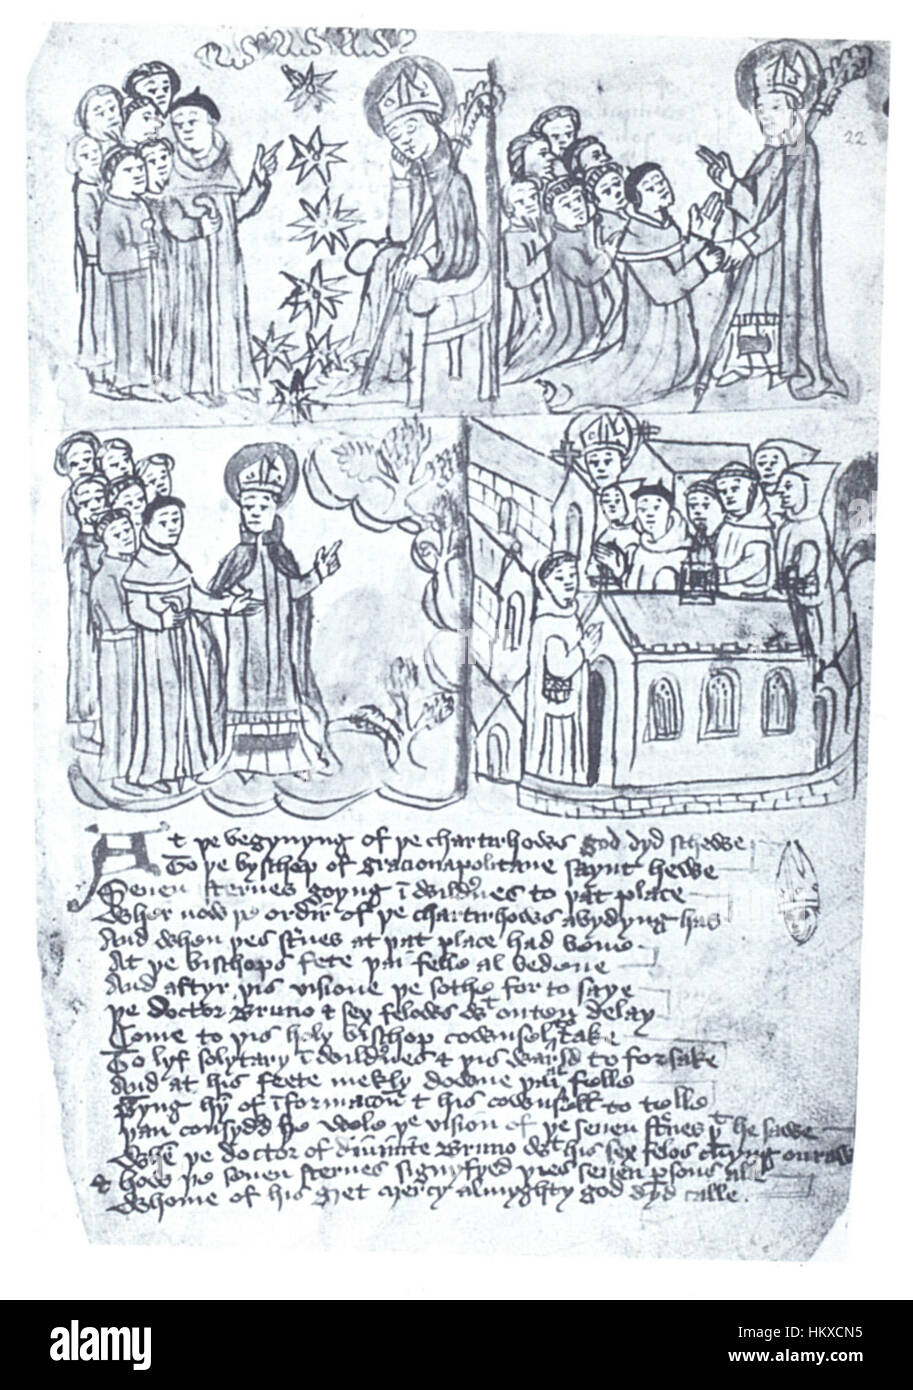 22
At þe begynyng of þe chartirhows god dyd schewe
To þe byschop of gracionapolitane saynt hewe
Seuen sternes goyng ī wildr̄nes to þat place
Wher now þe ordir of þe chartirhows abydyng has
And when þes str̄nes at þat place had bene
At þe bischops fete þai felle al bedene
And aftyr þis visione þe sothe for to saye
þe doctor Bruno & sex felows wt outen delay
Come to þis holy bischop cownsel to take
To lyf solytary ī wildr̄nes & þis warld to forsake
And at his feete mekly downe þai felle
Pyng hȳ of īformacōn & his cownsell to telle
þan consydd he wele þe vision of þe seuen str̄nes þt he sawe
When þe doctor of diuinite Bruno wt his sex felos
& how þe seuen sternes signyfyed þies seuen psons alle
Whome of his gret mercy almyghty god dyd calle.
alamy
Image ID: HKXCN5
www.alamy.com